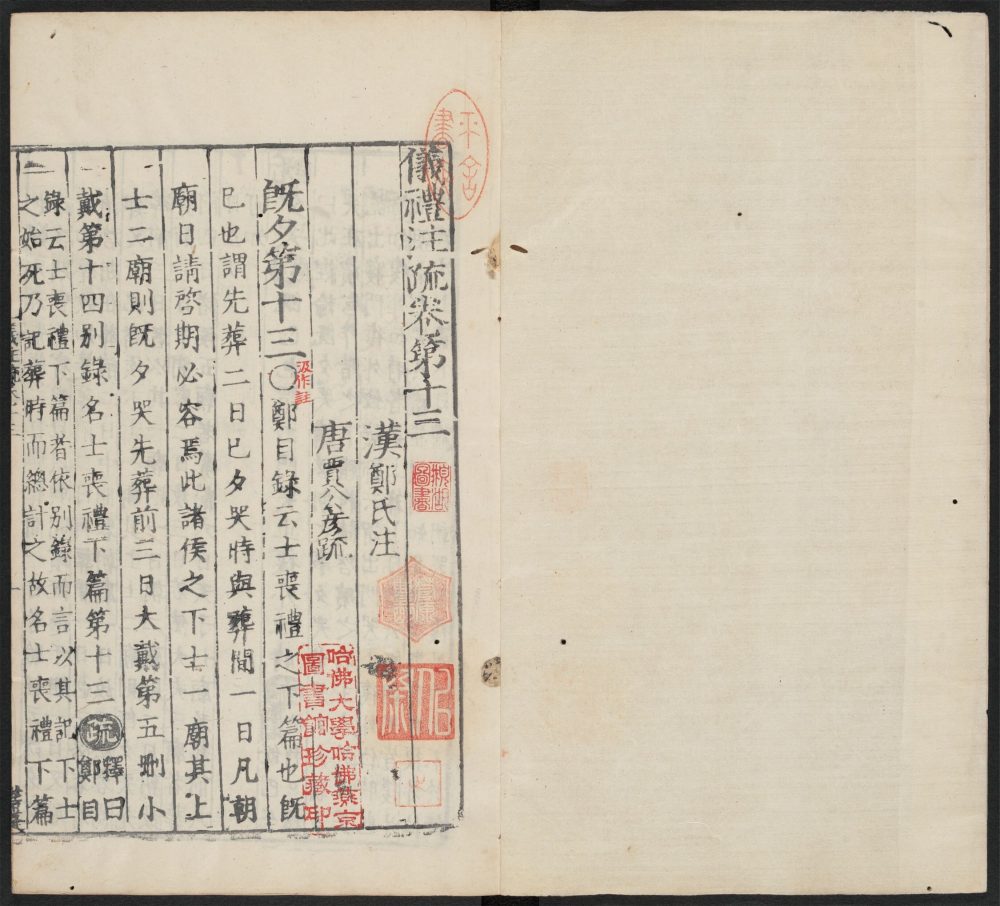 儀禮注疏卷第十三
漢鄭氏注
唐賈公彥疏
既夕第十三〇鄭目錄云士喪禮之下篇也既
汲作註
已也謂先葬二日已夕哭時與葬間一日凡朝
廟日請啓期必容焉此諸侯之下士一廟其上
士二廟則既夕哭先葬前三日大戴第五刪小
戴第十四別錄名士喪禮下篇第十三疏釋曰鄭目
錄云士喪禮下篇者依別錄而言以其記下士
之始死乃記葬時而總計之故名士喪禮下篇
哈佛大學哈佛燕京
圖書館珍藏印